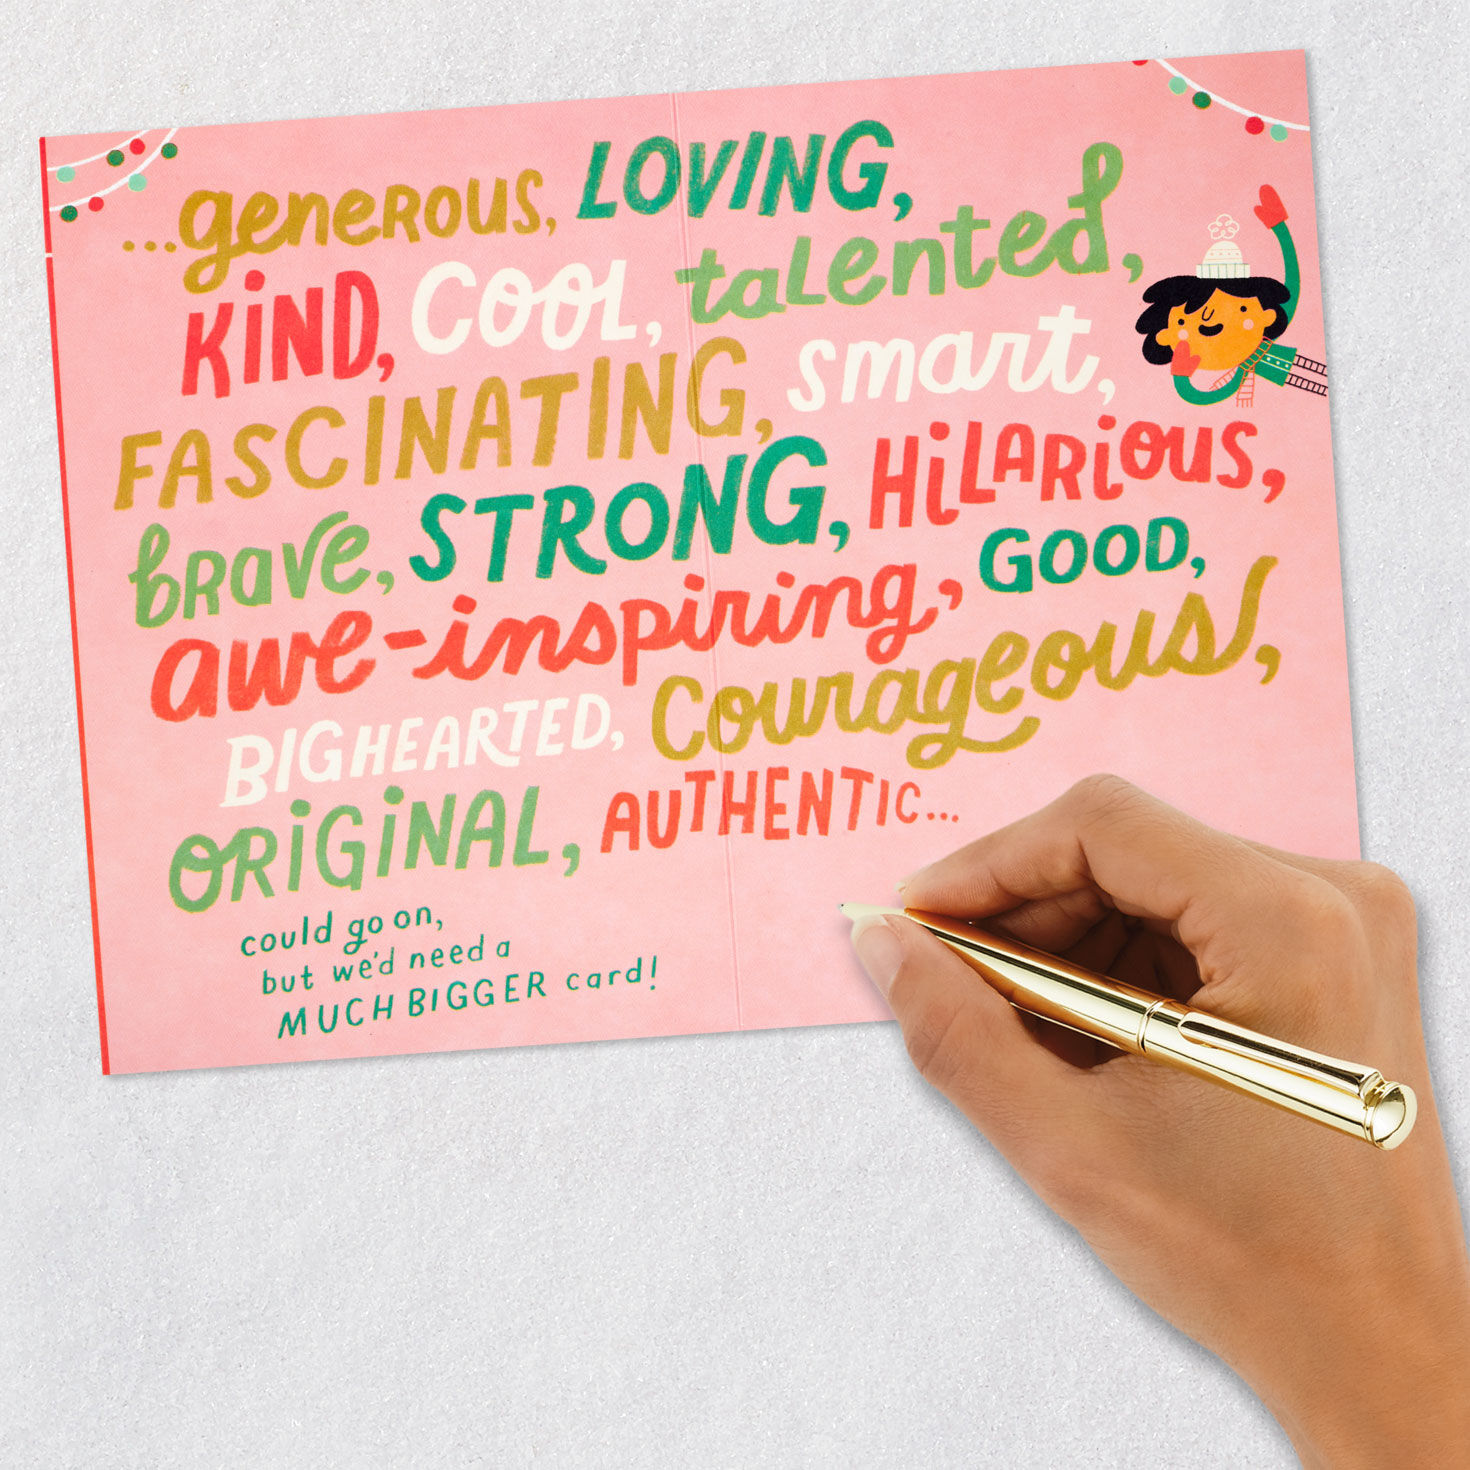 ...generous, LOVING,
KIND, COOL, talented,
FASCINATING, smart,
brave, STRONG, HILARIOUS,
awe-inspiring, GOOD,
BIGHEARTED, Courageous,
ORIGINAL, AUTHENTIC...
could go on,
but we'd need a
MUCH BIGGER card!